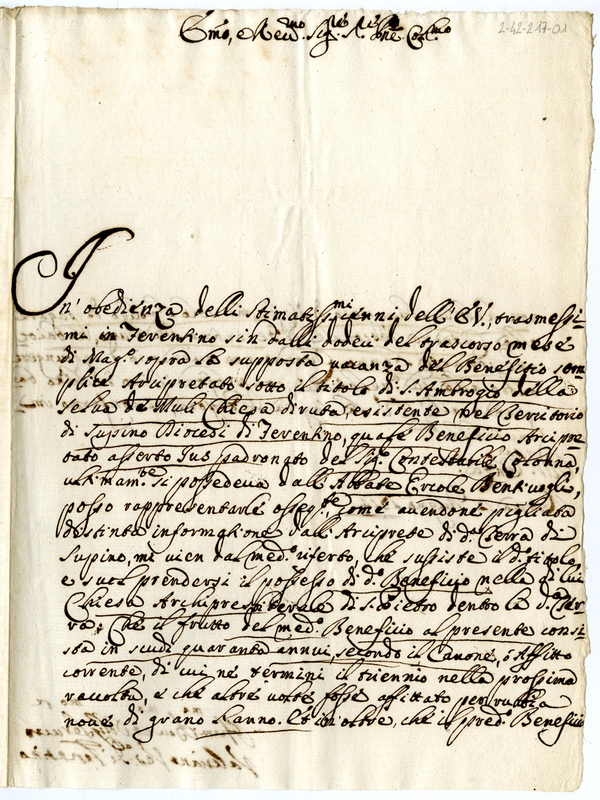 2-42-217-01
Em̃o, e Reu.mo Sig.re Sig.re Pr̃one Col.mo
In' obedienza delli stimatiss.mi cenni dell' E.V., trasmessi-
mi in Ferentino sin dalli dodeci del trascorso mese
di Mag.o sopra la supposta vacanza del Benefitio sem-
plice Arcipretato sotto il titolo di S. Ambrogio della
selua de Muli Chiesa diruta, esistente nel Territorio
di Supino Diocesi di Ferentino, quale Beneficio Arcipre-
tato asserto Jus padronato del Sig.r Contestabile Colonna,
ultimam.te si possedeua dall' Abbate Ercole Bentiuogli,
posso rappresentarle osseq.te Come auendone pigliata
distinta informatione dall' Arciprete di d.a Terra di
Supino, mi vien dal med.o riferto, che sussiste il d.o titolo,
e suol prendersi il possesso di d.o Beneficio nella di lui
Chiesa Archipresbiterale di S. Pietro dentro la d.a Ter-
ra: Che il frutto del med.o Beneficio al presente consi-
sta in scudi quaranta annui, secondo il Canone, ò Affitto
corrente, di cui ne termini il triennio nella prossima
raccolta, e che altre volte fosse affittato per rubbia
noue di grano l'anno. Et in oltre, che il pred.o Beneficio